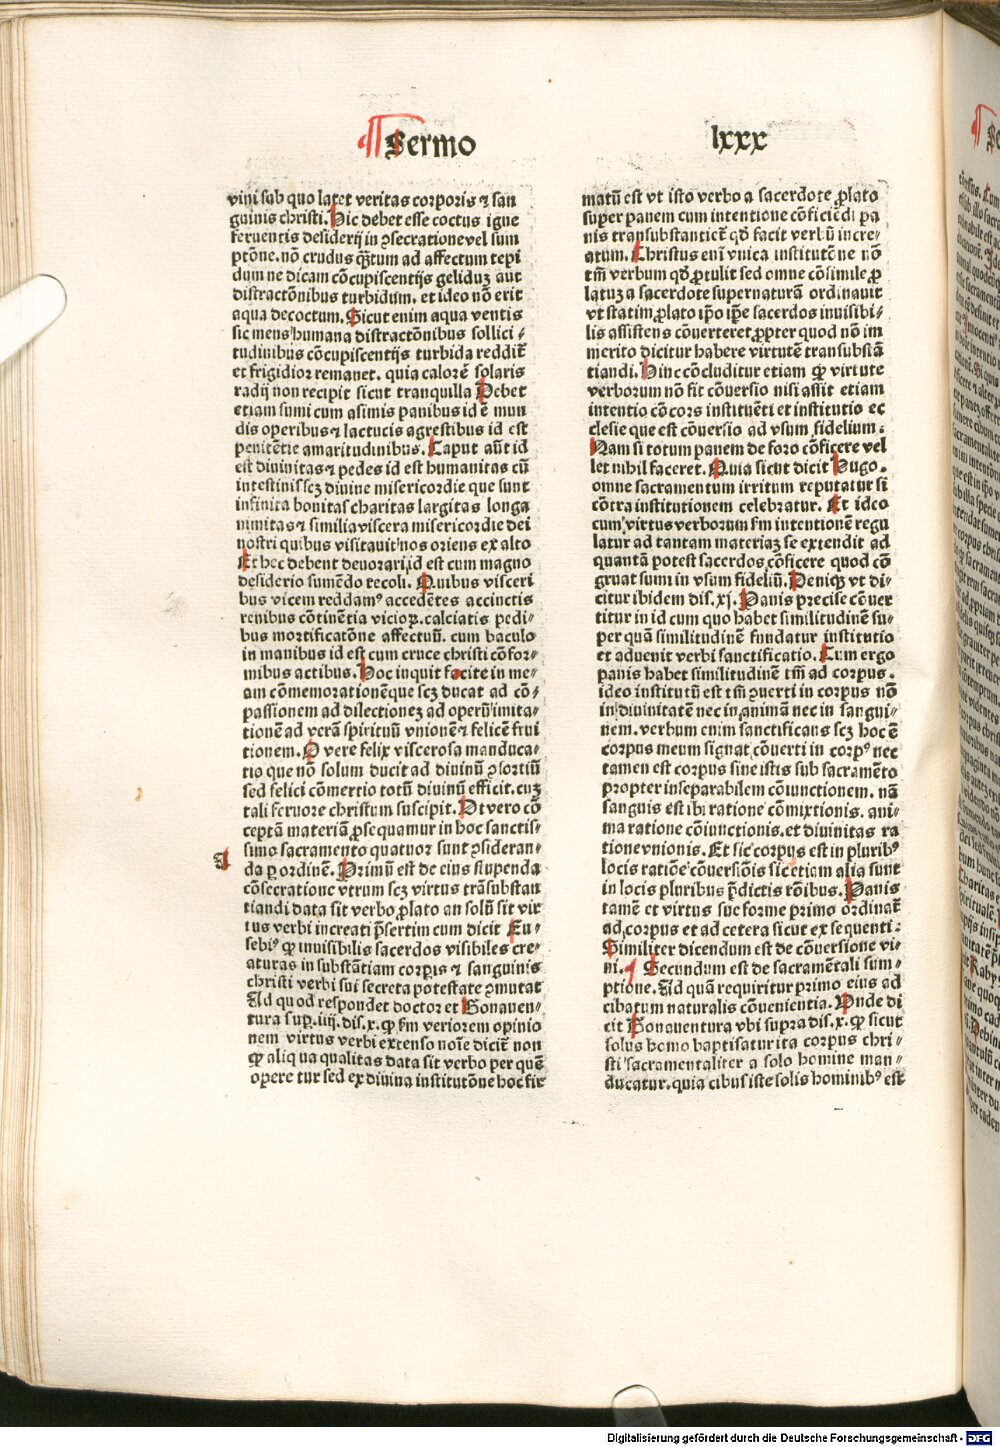 Sermo
lxxx
vini sub quo latet veritas corporis ⁊ san
guinis christi. Hic debet esse coctus igne
feruentis desiderij in ꝯsecratione vel sum
ptōne. nō crudus qȝtum ad affectum tepi
dum ne dicam cōcupiscentijs geliduȝ aut
distractōnibus turbidum. et ideo nō erit
aqua decoctum. Sicut enim aqua ventis
sic mens humana distractōnibus sollici⸗
tudinibus cōcupiscentijs turbida reddit̄
et frigidior remanet. quia calorē solaris
radij non recipit sicut tranquilla Debet
etiam sumi cum asimis panibus id ē mun
dis operibus ⁊ lactucis agrestibus id est
penitētie amaritudinibus. Caput aūt id
est diuinitas ⁊ pedes id est humanitas cū
intestinis scȝ diuine misericordie que sunt
infinita bonitas charitas largitas longa
nimitas ⁊ similia viscera misericordie dei
nostri quibus visitauit nos oriens ex alto
Et hec debent deuorari, id est cum magno
desiderio sumēdo recoli. Quibus visceri
bus vicem reddamꝰ accedētes accinctis
renibus cōtinētia vicioꝝ. calciatis pedi⸗
bus mortificatōne affectuū. cum baculo
in manibus id est cum cruce christi cōfor⸗
mibus actibus. Hoc inquit facite in me⸗
am cōmemorationē que scȝ ducat ad cō⸗
passionem ad dilectioneȝ ad operū imita⸗
tionē ad verā spirituū vnionē ⁊ felicē frui
tionem. O vere felix viscerosa manduca⸗
tio que nō solum ducit ad diuinū ꝯsortiū
sed felici cōmertio totū diuinū efficit. cuȝ
tali feruore christum suscipit. Ut vero cō
ceptā materiā ꝓsequamur in hoc sanctis⸗
simo sacramento quatuor sunt ꝯsideran⸗
da ꝑ ordinē. Primū est de eius stupenda
cōsecratione vtrum scȝ virtus trāsubstan
tiandi data sit verbo ꝓlato an solū sit vir
tus verbi increati p̄sertim cum dicit Eu⸗
sebiꝰ ꝙ inuisibilis sacerdos visibiles cre⸗
aturas in substātiam corpis ⁊ sanguinis
christi verbi sui secreta potestate ꝯmutat
Ad quod respondet doctor et Bonauen⸗
tura sup̄. iiij. dis. x. ꝙ fm veriorem opinio
nem virtus verbi extenso noīe dicit̄ non
ꝙ aliqua qualitas data sit verbo per quē
operetur sed ex diuina institutōne hoc fir
matū est vt isto verbo a sacerdote ꝓlato
super panem cum intentione cōficiēdi pa
nis transubstantiet̄ qd̄ facit verbū incre⸗
atum. Christus enī vnica institutōne nō
tm̄ verbum qd̄ ꝓtulit sed omne cōsimile ꝓ
latuȝ a sacerdote supernaturā ordinauit
vt statim ꝓlato ip̄o ip̄e sacerdos inuisibi⸗
lis assistens cōuerteret ꝓpter quod nō im
merito dicitur habere virtutē transubstā
tiandi. Hinc cōcluditur etiam ꝙ virtute
verborum nō fit cōuersio nisi assit etiam
intentio cōcors instituēti et institutio ec
clesie que est cōuersio ad vsum fidelium.
Nam si totum panem de foro cōficere vel
let nihil faceret. Quia sicut dicit Hugo.
omne sacramentum irritum reputatur si
cōtra institutionem celebratur. Et ideo
cum virtus verborum fm intentionē regu
latur ad tantam materiaȝ se extendit ad
quantā potest sacerdos cōficere quod cō
gruat sumi in vsum fideliū. Deniqȝ vt di⸗
citur ibidem dis. xj. Panis precise cōuer
titur in id cum quo habet similitudinē su⸗
per quā similitudinē fundatur institutio
et aduenit verbi sanctificatio. Cum ergo
panis habet similitudinē tm̄ ad corpus.
ideo institutū est tm̄ ꝯuerti in corpus nō
in diuinitatē nec in animā nec in sangui⸗
nem. verbum enim sanctificans scȝ hoc ē
corpus meum signat cōuerti in corpꝰ nec
tamen est corpus sine istis sub sacramēto
propter inseparabilem cōiunctionem. nā
sanguis est ibi ratione cōmixtionis. ani⸗
ma ratione cōiunctionis. et diuinitas ra
tione vnionis. Et sic corpus est in pluribꝰ
locis ratiōe cōuersiōis sic etiam alia sunt
in locis pluribus p̄dictis rōibus. Panis
tamē et virtus sue forme primo ordinat̄
ad corpus et ad cetera sicut ex sequenti.
Similiter dicendum est de cōuersione vi⸗
ni. ¶ Secundum est de sacramētali sum⸗
ptione. Ad quā requiritur primo eius ad
cibatum naturalis cōuenientia. Unde di
cit Bonauentura vbi supra dis. x. ꝙ sicut
solus homo baptisatur ita corpus chri⸗
sti sacramentaliter a solo homine man⸗
ducatur. quia cibus iste solis hominibꝰ est
Digitalisierung gefördert durch die Deutsche Forschungsgemeinschaft - DFG